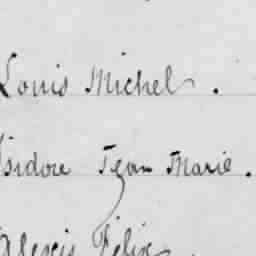 Louis Michel.
Isidore Jean Marie.
Alexis Félix